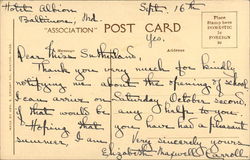 Hotel Albion Sept. 16th
Baltimore, Md.
"ASSOCIATION" POST CARD
Place
Stamp here
DOMESTIC 1c
FOREIGN 2c
Address
Dear Miss Sutherland:
Thank you very much for kindly
notifying me about the opening of school.
I can arrive on Saturday October second
if that would be any help to you.
Hoping that you have had a pleasant
summer, I am
Very sincerely yours
Elizabeth Maxwell Carroll